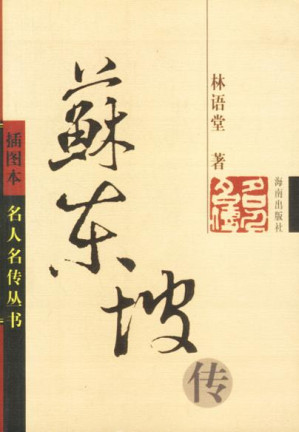 蘇东坡
传
林语堂 著
名人
名传
海南出版社
插图本
名人名传丛书